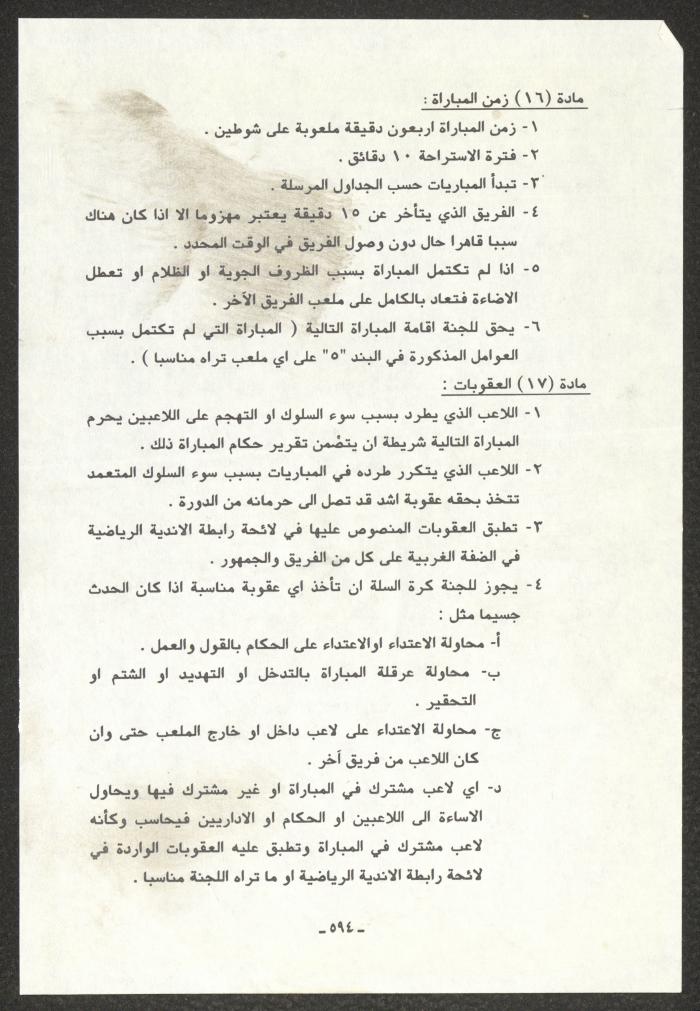 مادة (١٦) زمن المباراة :
١- زمن المباراة اربعون دقيقة ملعوبة على شوطين .
٢- فترة الاستراحة ١٠ دقائق .
٣- تبدأ المباريات حسب الجداول المرسلة .
٤- الفريق الذي يتأخر عن ١٥ دقيقة يعتبر مهزوما الا اذا كان هناك
سببا قاهرا حال دون وصول الفريق في الوقت المحدد .
٥- اذا لم تكتمل المباراة بسبب الظروف الجوية او الظلام او تعطل
الاضاءة فتعاد بالكامل على ملعب الفريق الآخر .
٦- يحق للجنة اقامة المباراة التالية ( المباراة التي لم تكتمل بسبب
العوامل المذكورة في البند "٥" على اي ملعب تراه مناسبا ) .
مادة (١٧) العقوبات :
١- اللاعب الذي يطرد بسبب سوء السلوك او التهجم على اللاعبين يحرم
المباراة التالية شريطة ان يتضمن تقرير حكام المباراة ذلك .
٢- اللاعب الذي يتكرر طرده في المباريات بسبب سوء السلوك المتعمد
تتخذ بحقه عقوبة اشد قد تصل الى حرمانه من الدورة .
٣- تطبق العقوبات المنصوص عليها في لائحة رابطة الاندية الرياضية
في الضفة الغربية على كل من الفريق والجمهور .
٤- يجوز للجنة كرة السلة ان تأخذ اي عقوبة مناسبة اذا كان الحدث
جسيما مثل :
أ- محاولة الاعتداء اوالاعتداء على الحكام بالقول والعمل .
ب- محاولة عرقلة المباراة بالتدخل او التهديد او الشتم او
التحقير .
ج- محاولة الاعتداء على لاعب داخل او خارج الملعب حتى وان
كان اللاعب من فريق آخر .
د- اي لاعب مشترك في المباراة او غير مشترك فيها ويحاول
الاساءة الى اللاعبين او الحكام او الاداريين فيحاسب وكأنه
لاعب مشترك في المباراة وتطبق عليه العقوبات الواردة في
لائحة رابطة الاندية الرياضية او ما تراه اللجنة مناسبا .
- ٥٩٤ -